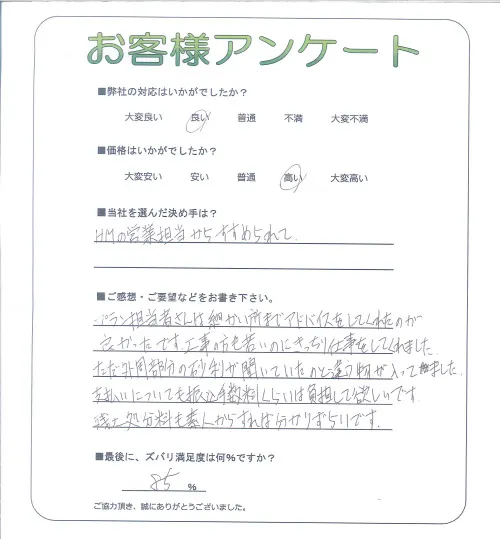 お客様アンケート
■弊社の対応はいかがでしたか？
大変良い 良い 普通 不満 大変不満
■価格はいかがでしたか？
大変安い 安い 普通 高い 大変高い
■当社を選んだ決め手は？
HMの営業担当からすすめられて．
■ご感想・ご要望などをお書き下さい。
・プラン担当者さんは細かい所までアドバイスをしてくれたのが
良かったです．工事の方も若いのにきっちり仕事をしてくれました．
ただ外周部分の砂利が聞いていたのと違う物が入ってました．
支払いについても振込手数料くらいは負担して欲しいです．
残土処分料も素人からすれば分かりずらいです．
■最後に、ズバリ満足度は何％ですか？
85 %
ご協力頂き、誠にありがとうございました。